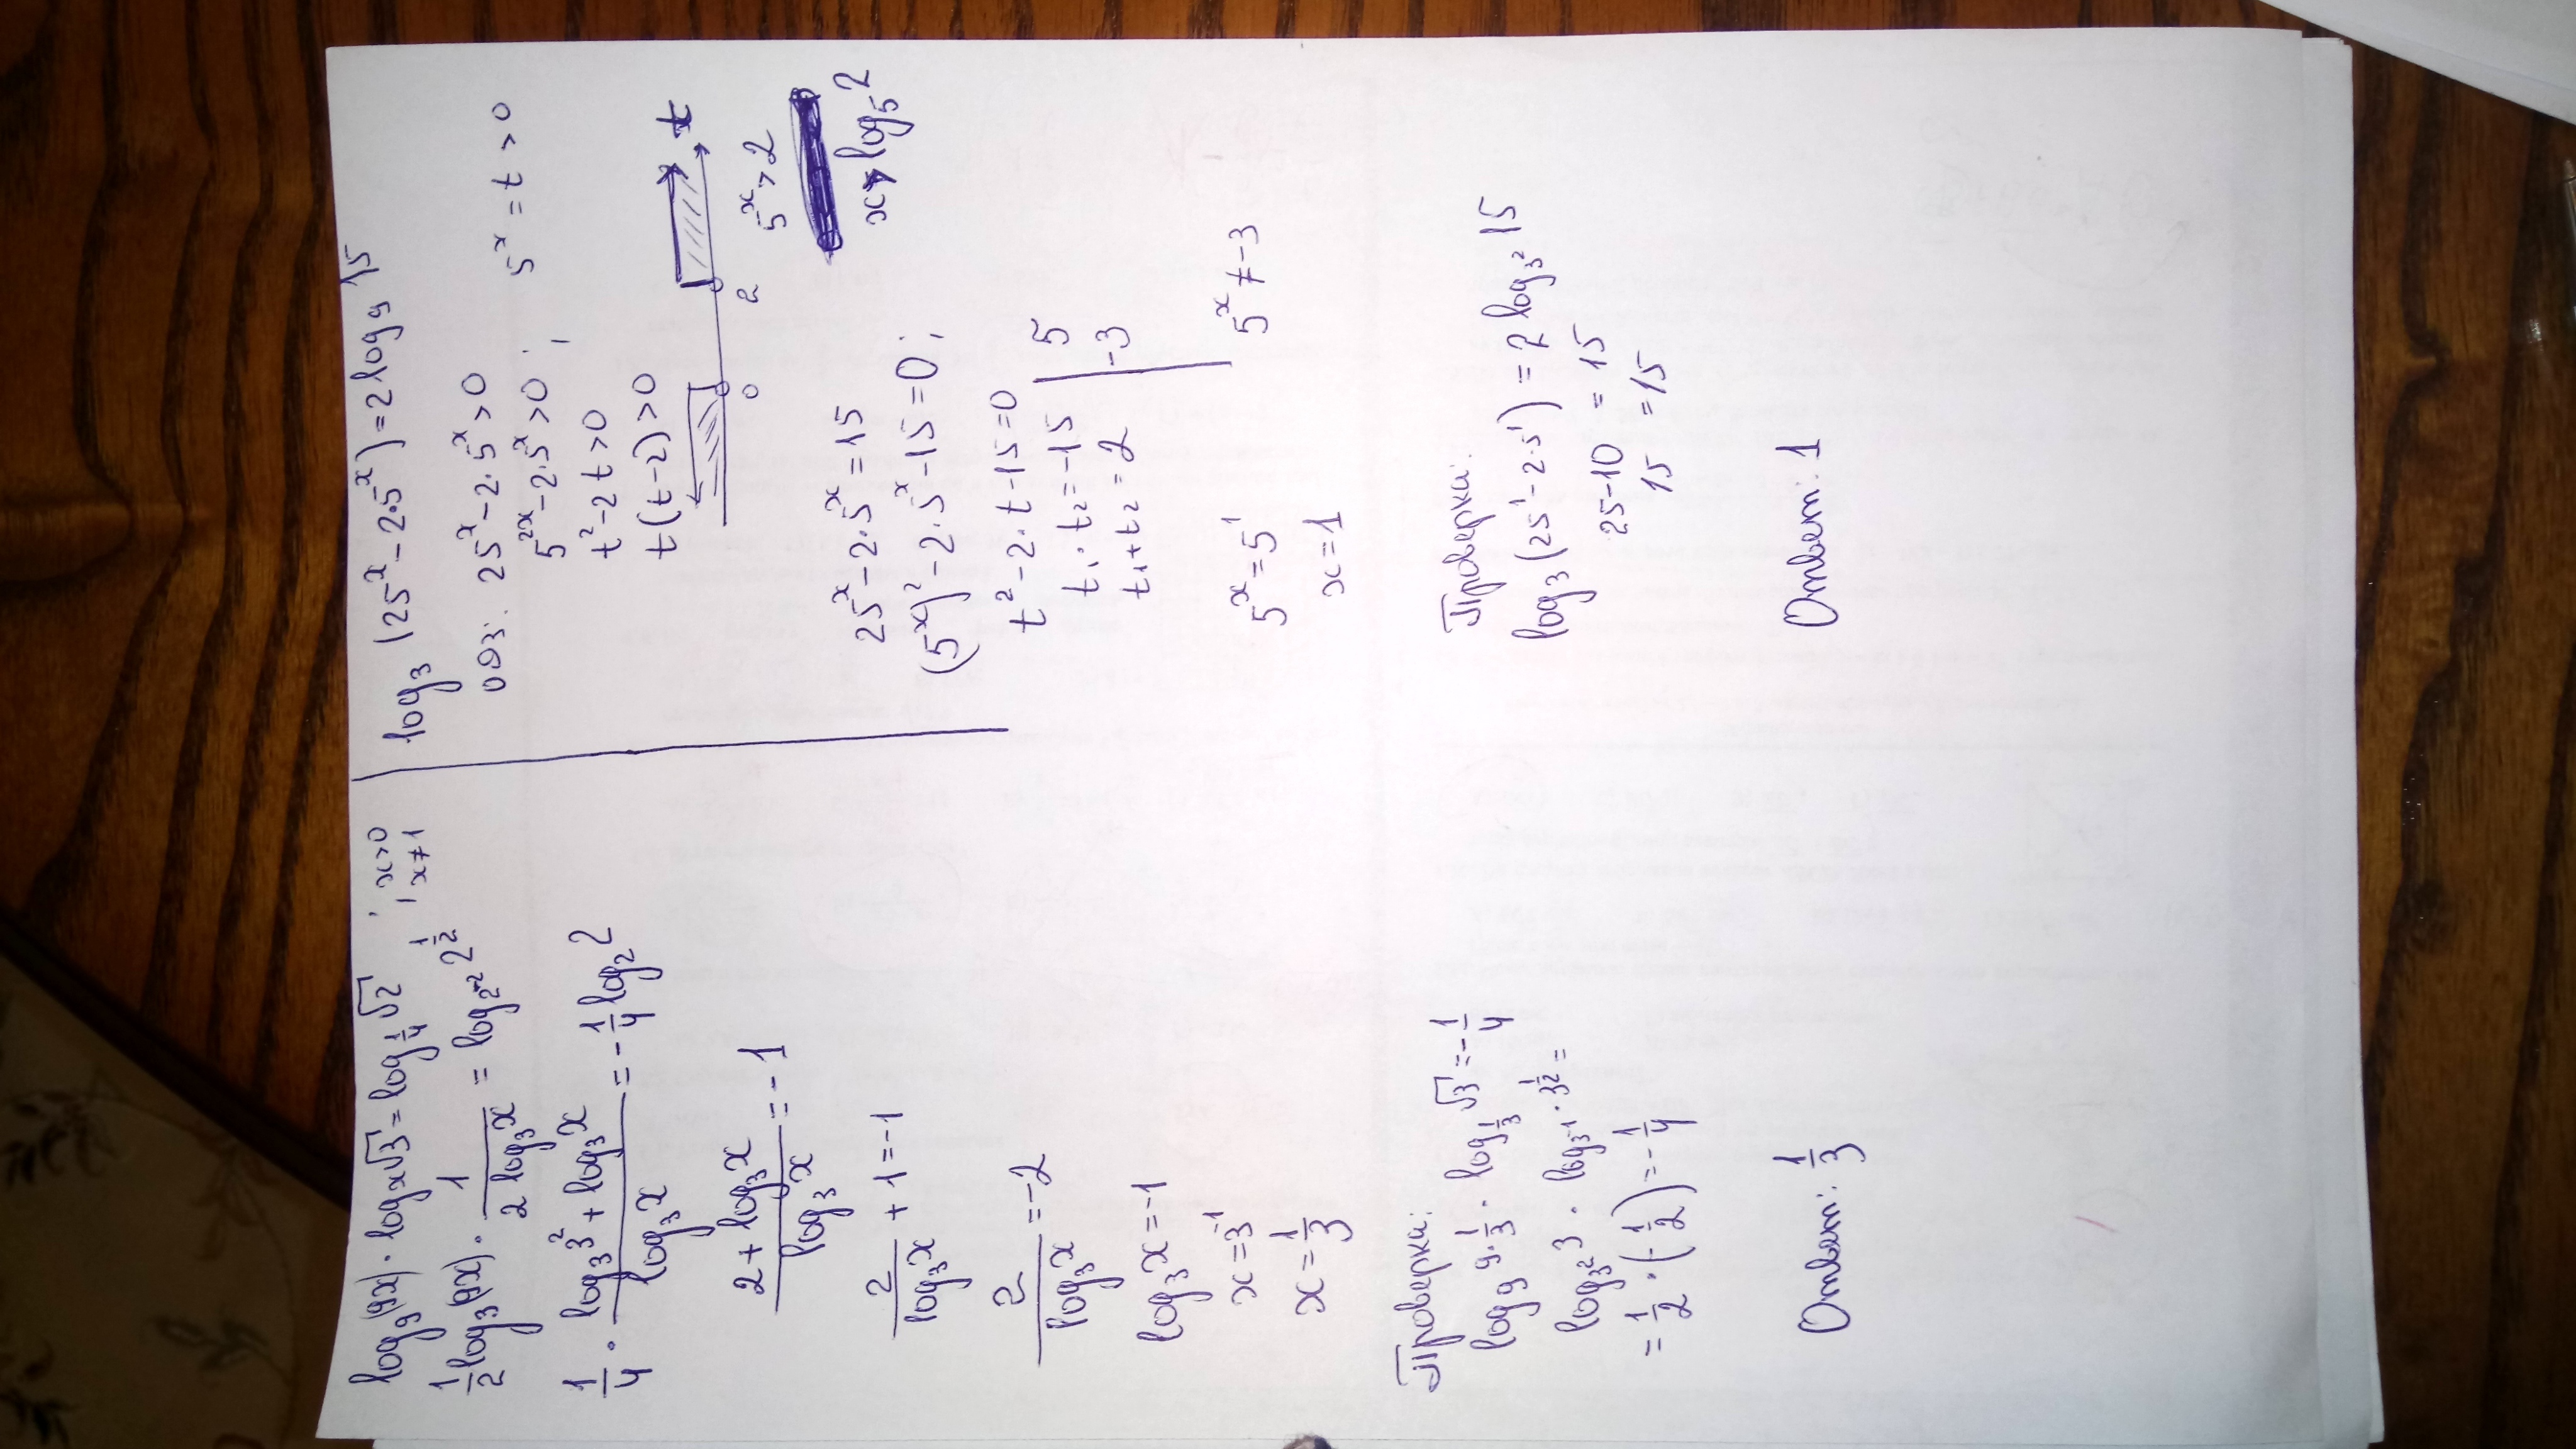 log₉(9x) · logₓ√3 = log_{1/4} √2 ; x>0
; x≠1
1/2 log₃(9x) · 1/(2 log₃x) = log_{2⁻²} 2^{1/2}
1/4 · (log₃3² + log₃x)/(log₃x) = -1/4 log₂2
(2 + log₃x)/(log₃x) = -1
2/(log₃x) + 1 = -1
2/(log₃x) = -2
log₃x = -1
x = 3⁻¹
x = 1/3
Проверка:
log₉ 9·1/3 · log_{1/3} √3 = -1/4
log_{3²}3 · log_{3⁻¹} · 3^{1/2} =
= 1/2 · (-1/2) = -1/4
Ответ: 1/3
log₃(25ˣ - 2·5ˣ) = 2 log₉ 15
ОДЗ: 25ˣ - 2·5ˣ > 0
5²ˣ - 2·5ˣ > 0 ; 5ˣ = t > 0
t² - 2t > 0
t(t-2) > 0
0 2 t
5ˣ > 2
x > log₅2
25ˣ - 2·5ˣ = 15
(5ˣ)² - 2·5ˣ - 15 = 0 ;
t² - 2·t - 15 = 0
t₁ · t₂ = -15 | 5
t₁ + t₂ = 2 | -3
5ˣ = 5¹ 5ˣ ≠ -3
x = 1
Проверка:
log₃(25¹ - 2·5¹) = 2 log_{3²} 15
25 - 10 = 15
15 = 15
Ответ: 1